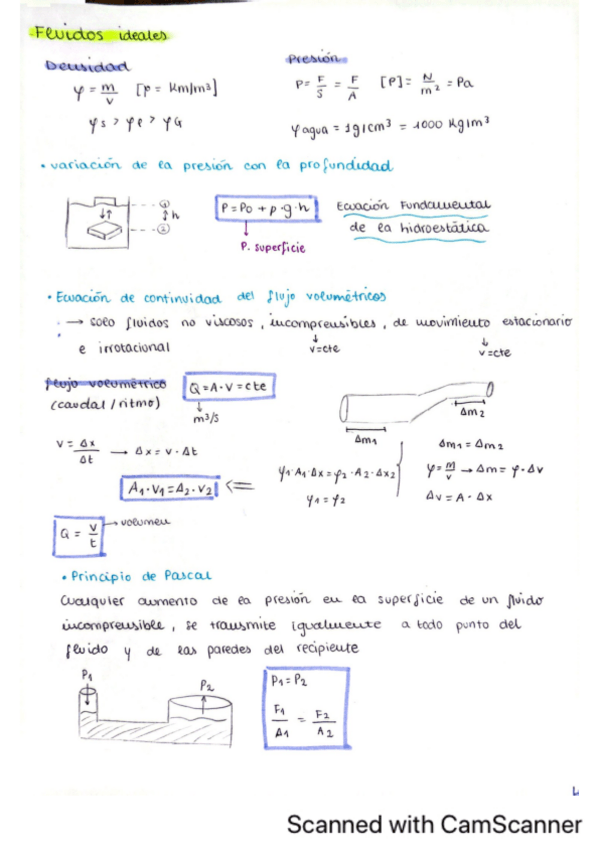 Fluidos ideales
Densidad
φ = m/v [p = Km/m³]
φs > φl > φG
Presión
P = F/S = F/A [P] = N/m² = Pa
φagua = 1g/cm³ = 1000 Kg/m³
• variación de la presión con la profundidad
① h ②
P = P0 + p·g·h
P. superficie
Ecuación Fundamental
de la hidroestática
• Ecuación de continuidad del flujo volumétricos
→ solo fluidos no viscosos, incompreusibles, de movimiento estacionario
e irrotacional v=cte v=cte
flujo volumétrico
(caudal / ritmo)
Q = A·V = cte
m³/s
Δm1 Δm2
v = Δx/Δt → Δx = v·Δt
A1·V1 = A2·V2 <=
φ1·A1·Δx = φ2·A2·Δx2
φ1 = φ2
Δm1 = Δm2
φ = m/v → Δm = φ·Δv
Δv = A·Δx
Q = v/t → volumen
• Principio de Pascal
Cualquier aumento de la presión en la superficie de un fluido
incompreusible, se transmite igualmente a todo punto del
fluido y de las paredes del recipiente
P1 P2
P1 = P2
F1/A1 = F2/A2
Scanned with CamScanner